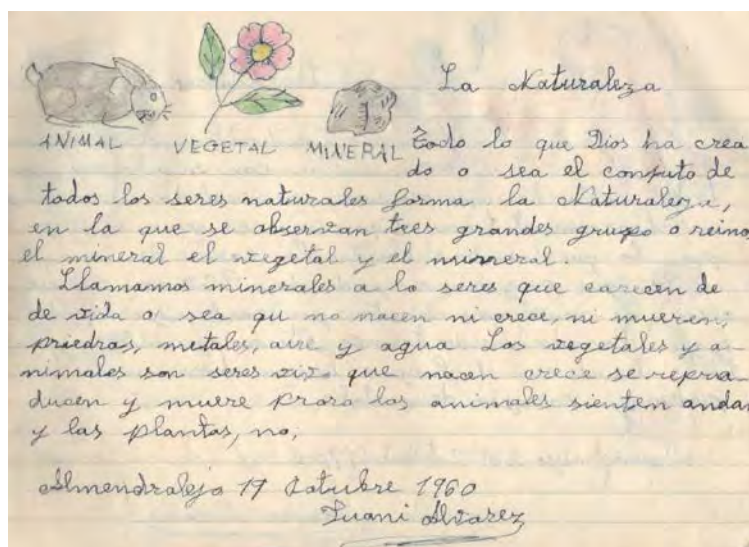 La Naturaleza
ANIMAL VEGETAL MINERAL
Todo lo que Dios ha crea
do o sea el conjuto de
todos los seres naturales forma la Naturaleza,
en la que se observan tres grandes grupo o reino
el mineral el vegetal y el minreral.
Llamamos minerales a lo seres que carecen de
de vida o sea qu no nacen ni crece, ni mueren;
priedras, metales, aire y agua Los vegetales y a-
nimales son seres vivo que nacen crece se repro
ducen y muere prara los animales sienten andan
y las plantas, no,
Almendralejo 17 Octubre 1960
Juani Alvarez